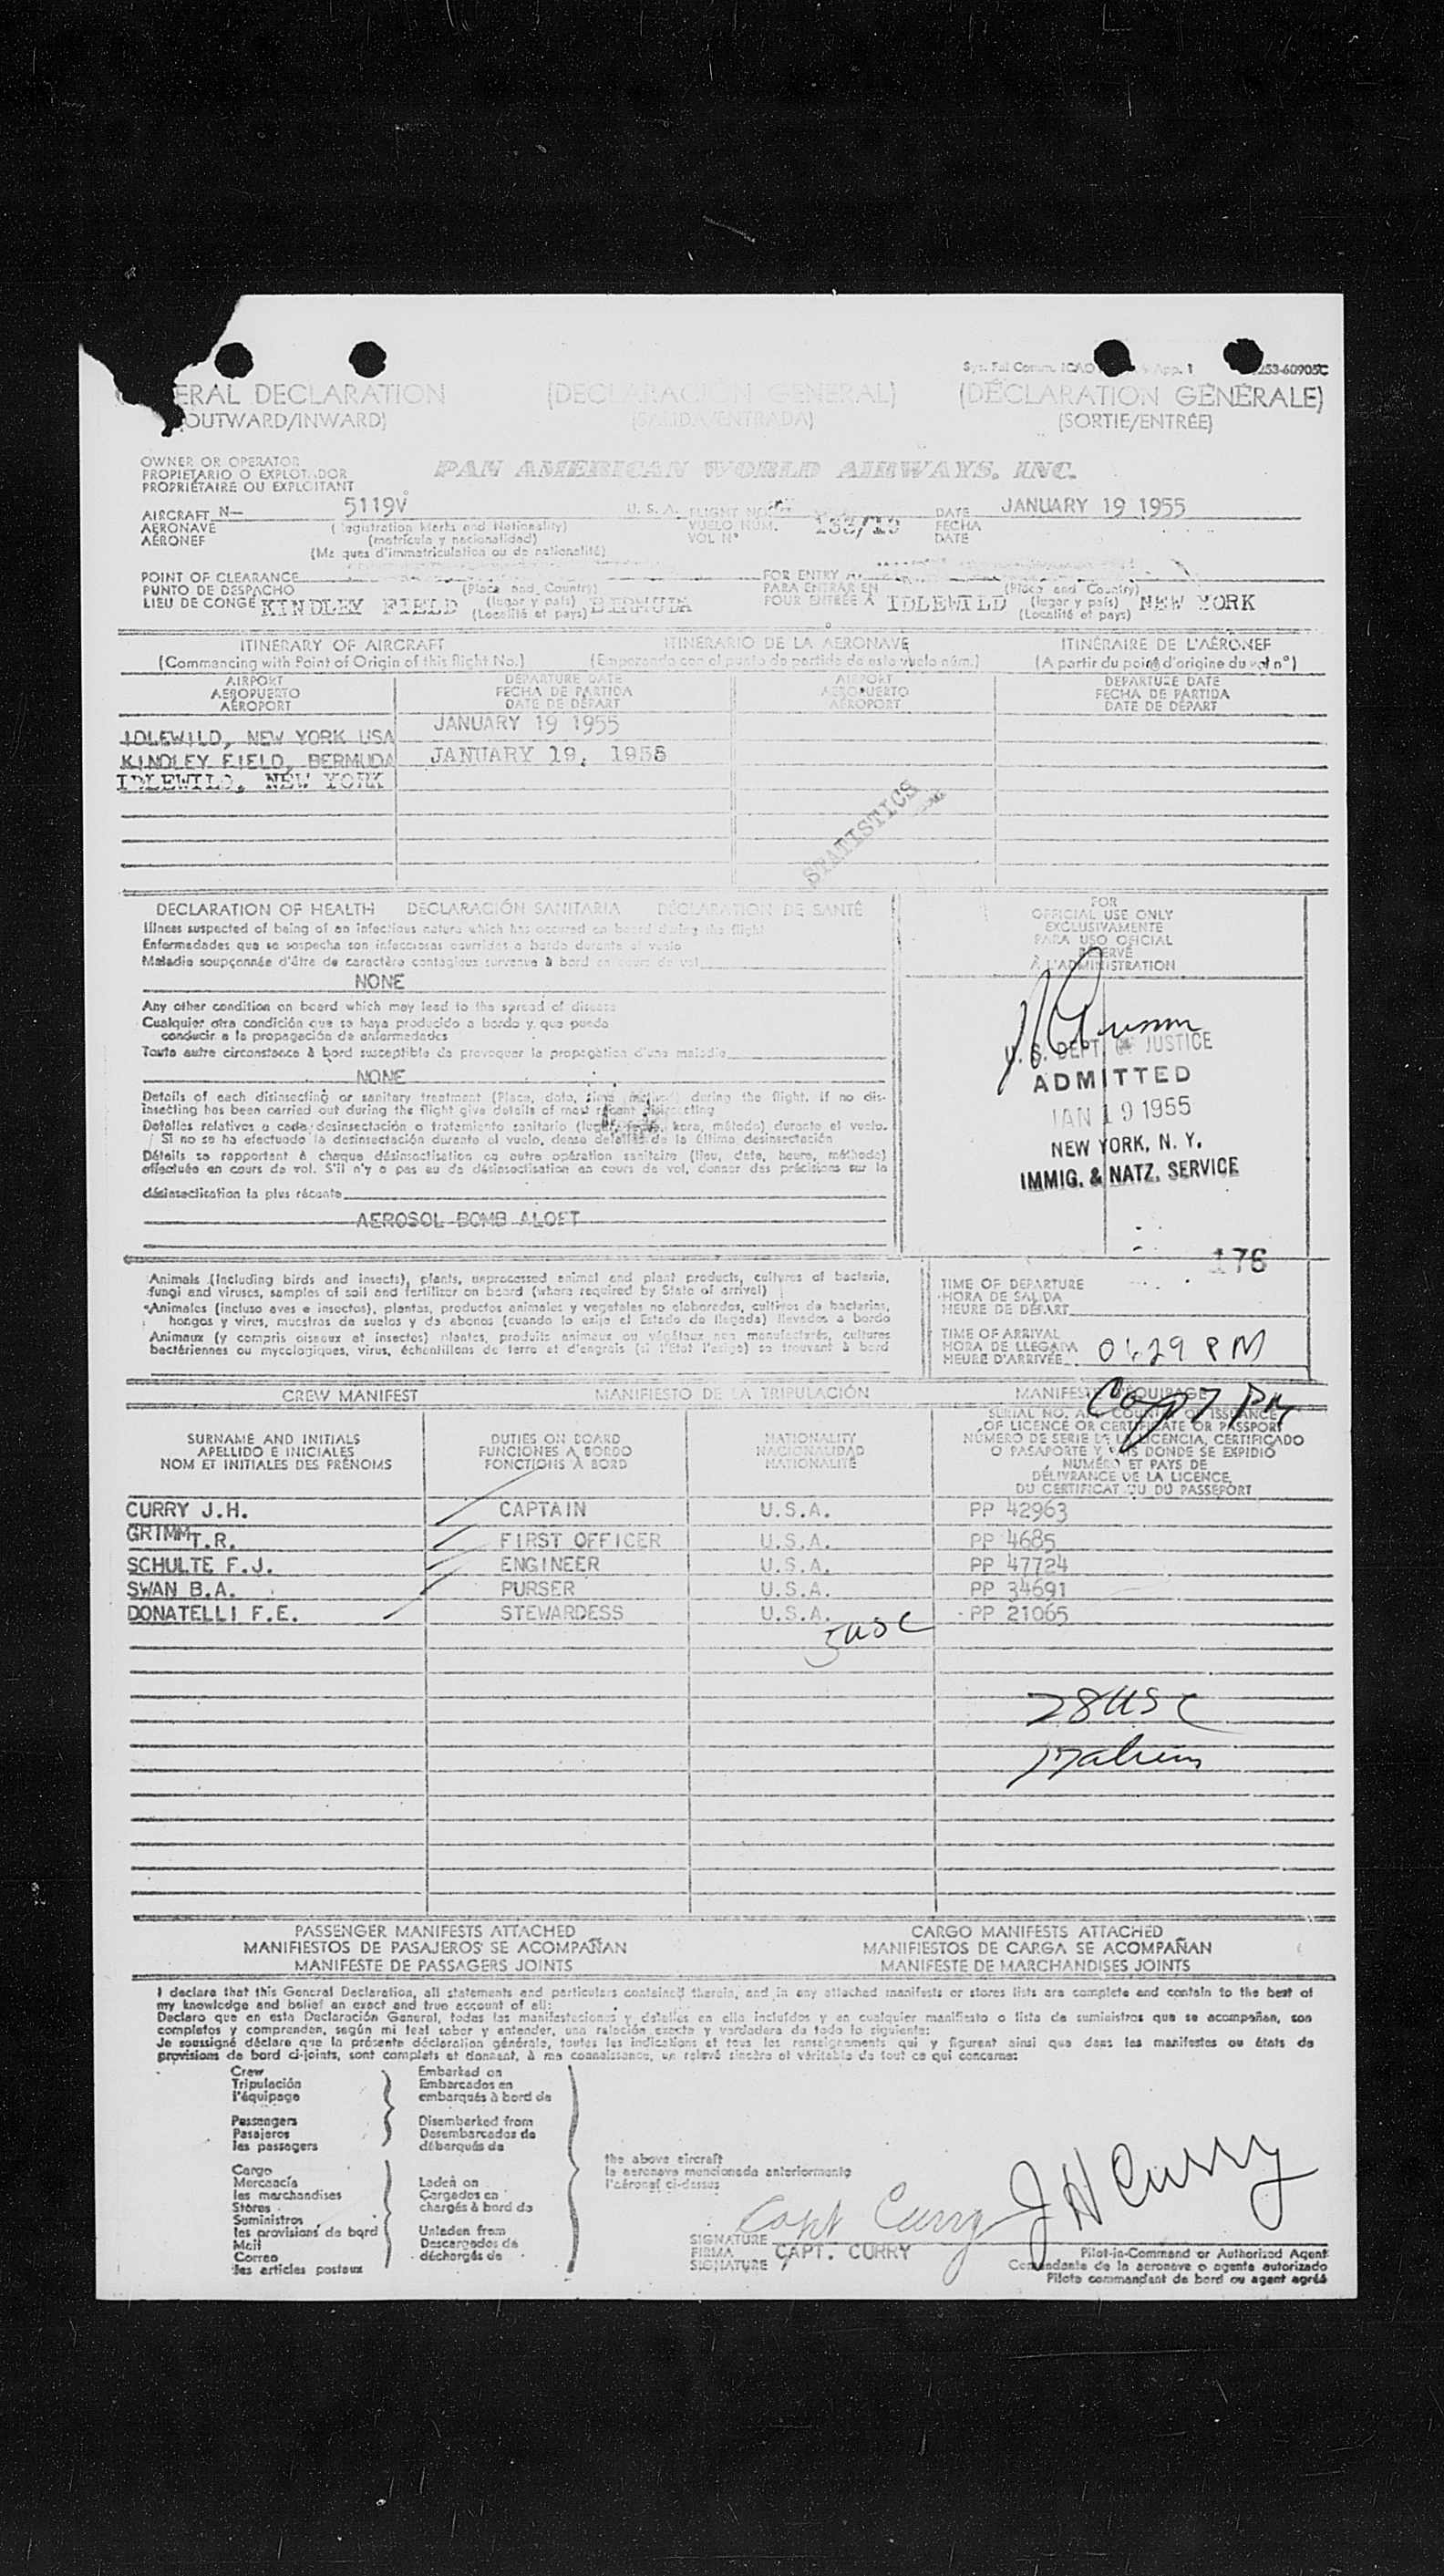 Sys. Ful Comm. ICAO App. 1 253-60905C
ERAL DECLARATION (DECLARACIÓN GENERAL) (DÉCLARATION GÉNÉRALE)
(OUTWARD/INWARD) (SALIDA/ENTRADA) (SORTIE/ENTRÉE)
OWNER OR OPERATOR
PROPIETARIO O EXPLOTADOR PAN AMERICAN WORLD AIRWAYS, INC.
PROPRIÉTAIRE OU EXPLOITANT
AIRCRAFT N- 5119V U. S. A. FLIGHT NO. DATE JANUARY 19 1955
AERONAVE (Registration Marks and Nationality) VUELO NÚM. 133/19 FECHA
AÉRONEF (matrícula y nacionalidad) VOL Nº DATE
(Marques d'immatriculation ou de nationalité)
POINT OF CLEARANCE FOR ENTRY AT
PUNTO DE DESPACHO (Place and Country) PARA ENTRAR EN (Place and Country)
LIEU DE CONGÉ KINDLEY FIELD (lugar y país) BERMUDA POUR ENTRÉE À IDLEWILD (lugar y país) NEW YORK
(Localité et pays) (Localité et pays)
ITINERARY OF AIRCRAFT ITINERARIO DE LA AERONAVE ITINÉRAIRE DE L'AÉRONEF
(Commencing with Point of Origin of this flight No.) (Empezando con el punto de partida de este vuelo núm.) (A partir du point d'origine du vol nº)
AIRPORT DEPARTURE DATE AIRPORT DEPARTURE DATE
AEROPUERTO FECHA DE PARTIDA AEROPUERTO FECHA DE PARTIDA
AÉROPORT DATE DE DÉPART AÉROPORT DATE DE DÉPART
IDLEWILD, NEW YORK USA JANUARY 19 1955
KINDLEY FIELD, BERMUDA JANUARY 19, 1955
IDLEWILD, NEW YORK
STATISTICS
DECLARATION OF HEALTH DECLARACIÓN SANITARIA DÉCLARATION DE SANTÉ
Illness suspected of being of an infectious nature which has occurred on board during the flight
Enfermedades que se sospecha son infecciosas ocurridas a bordo durante el vuelo
Maladie soupçonnée d'être de caractère contagieux survenue à bord en cours de vol
NONE
Any other condition on board which may lead to the spread of disease
Cualquier otra condición que se haya producido a bordo y que pueda
conducir a la propagación de enfermedades
Toute autre circonstance à bord susceptible de provoquer la propagation d'une maladie
NONE
Details of each disinsecting or sanitary treatment (Place, date, time, method) during the flight. If no dis-
insecting has been carried out during the flight give details of most recent disinsecting
Detalles relativos a cada desinsectación o tratamiento sanitario (lugar, fecha, hora, método) durante el vuelo.
Si no se ha efectuado la desinsectación durante el vuelo, dense detalles de la última desinsectación
Détails se rapportant à chaque désinsectisation ou autre opération sanitaire (lieu, date, heure, méthode)
effectuée en cours de vol. S'il n'y a pas eu de désinsectisation en cours de vol, donner des précisions sur la
désinsectisation la plus récente
AEROSOL BOMB ALOFT
FOR
OFFICIAL USE ONLY
EXCLUSIVAMENTE
PARA USO OFICIAL
RÉSERVÉ
À L'ADMINISTRATION
U. S. DEPT. OF JUSTICE
ADMITTED
JAN 19 1955
NEW YORK, N. Y.
IMMIG. & NATZ. SERVICE
176
Animals (including birds and insects), plants, unprocessed animal and plant products, cultures of bacteria,
fungi and viruses, samples of soil and fertilizer on board (where required by State of arrival)
Animales (incluso aves e insectos), plantas, productos animales y vegetales no elaborados, cultivos de bacterias,
hongos y virus, muestras de suelos y de abonos (cuando lo exija el Estado de llegada) llevados a bordo
Animaux (y compris oiseaux et insectes) plantes, produits animaux ou végétaux non manufacturés, cultures
bactériennes ou mycologiques, virus, échantillons de terre et d'engrais (si l'État l'exige) se trouvant à bord
TIME OF DEPARTURE
HORA DE SALIDA
HEURE DE DÉPART
TIME OF ARRIVAL
HORA DE LLEGADA
HEURE D'ARRIVÉE 06:29 PM
CREW MANIFEST MANIFIESTO DE LA TRIPULACIÓN MANIFESTE D'ÉQUIPAGE
7 PM
SURNAME AND INITIALS
APELLIDO E INICIALES
NOM ET INITIALES DES PRÉNOMS
DUTIES ON BOARD
FUNCIONES A BORDO
FONCTIONS À BORD
NATIONALITY
NACIONALIDAD
NATIONALITÉ
SERIAL NO. AND COUNTRY OF ISSUANCE
OF LICENCE OR CERTIFICATE OR PASSPORT
NÚMERO DE SERIE DE LA LICENCIA, CERTIFICADO
O PASAPORTE Y PAÍS DONDE SE EXPIDIÓ
NUMÉRO ET PAYS DE
DÉLIVRANCE DE LA LICENCE,
DU CERTIFICAT OU DU PASSEPORT
CURRY J.H. CAPTAIN U.S.A. PP 42963
GRIMM T.R. FIRST OFFICER U.S.A. PP 4685
SCHULTE F.J. ENGINEER U.S.A. PP 47724
SWAN B.A. PURSER U.S.A. PP 34691
DONATELLI F.E. STEWARDESS U.S.A. PP 21065
5 USC
28 USC
PASSENGER MANIFESTS ATTACHED CARGO MANIFESTS ATTACHED
MANIFIESTOS DE PASAJEROS SE ACOMPAÑAN MANIFIESTOS DE CARGA SE ACOMPAÑAN
MANIFESTE DE PASSAGERS JOINTS MANIFESTE DE MARCHANDISES JOINTS
I declare that this General Declaration, all statements and particulars contained therein, and in any attached manifests or stores lists are complete and contain to the best of
my knowledge and belief an exact and true account of all:
Declaro que en esta Declaración General, todas las manifestaciones y detalles en ella incluídos y en cualquier manifiesto o lista de suministros que se acompañan, son
completos y comprenden, según mi leal saber y entender, una relación exacta y verdadera de todo lo siguiente:
Je soussigné déclare que la présente déclaration générale, toutes les indications et tous les renseignements qui y figurent ainsi que dans les manifestes ou états de
provisions de bord ci-joints, sont complets et donnent, à ma connaissance, un relevé sincère et véritable de tout ce qui concerne:
Crew Embarked on
Tripulación Embarcados en
l'équipage embarqués à bord de
Passengers Disembarked from
Pasajeros Desembarcados de
les passagers débarqués de
the above aircraft
la aeronave mencionada anteriormente
l'aéronef ci-dessus
Cargo
Mercancía Laden on
les marchandises Cargados en
Stores chargés à bord de
Suministros
les provisions de bord Unladen from
Mail Descargados de
Correo déchargés de
les articles postaux
Capt Curry J H Curry
SIGNATURE
FIRMA CAPT. CURRY
SIGNATURE
Pilot-in-Command or Authorized Agent
Comandante de la aeronave o agente autorizado
Pilote commandant de bord ou agent agréé